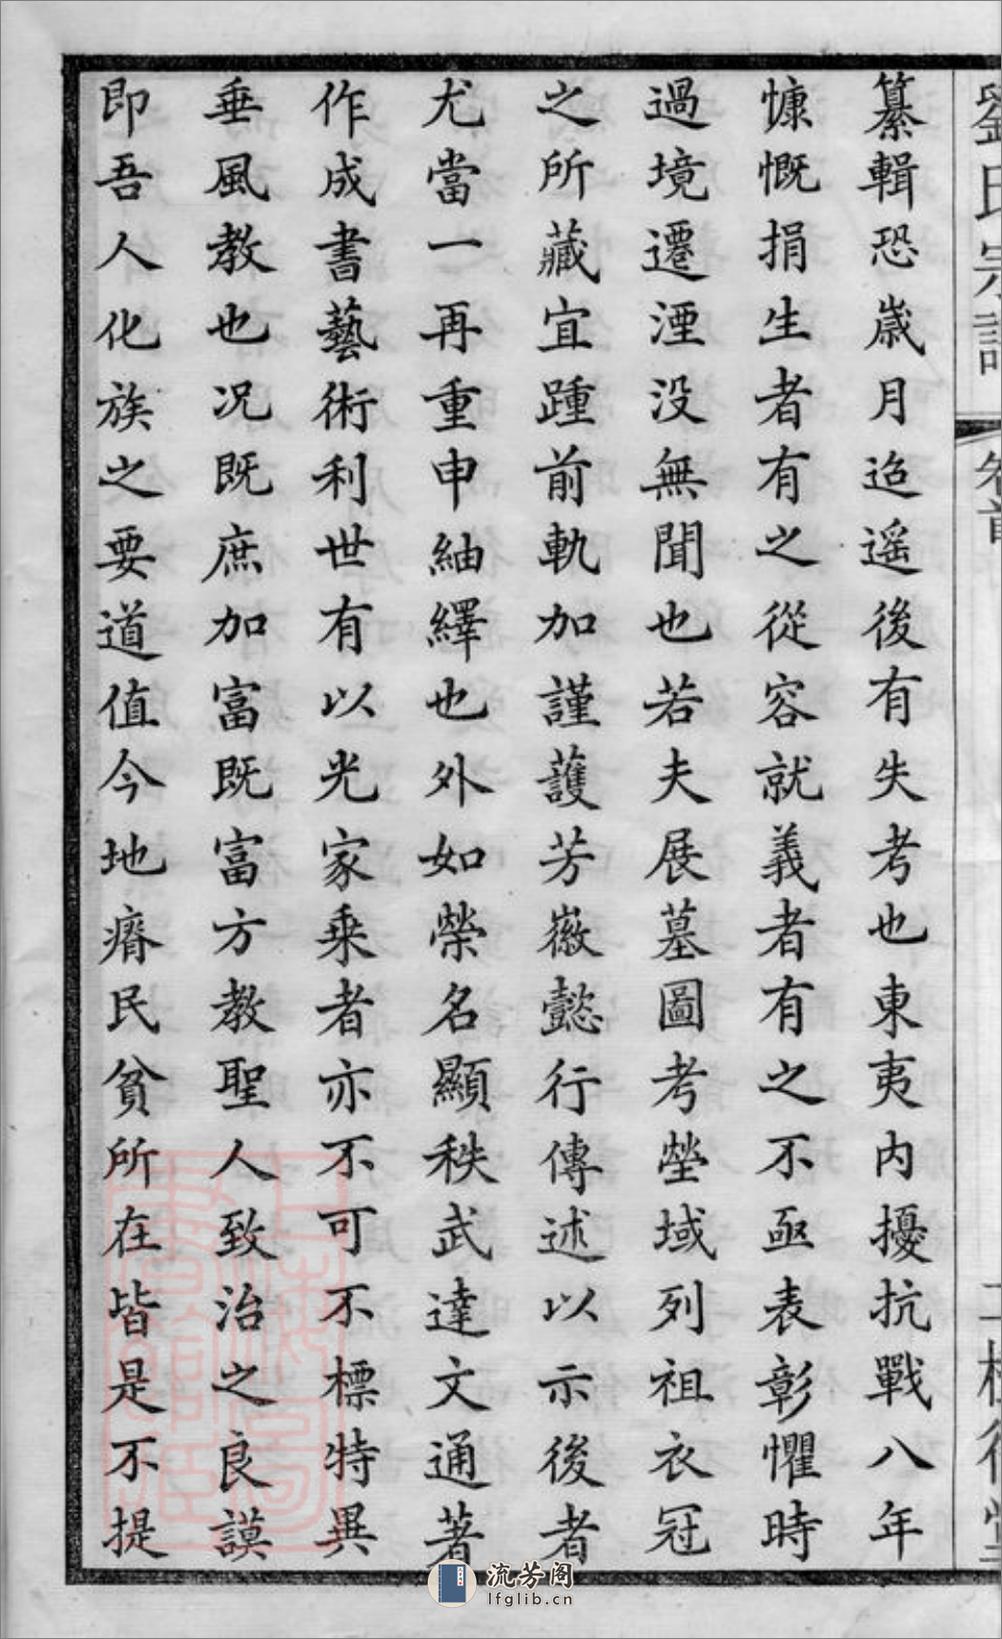 劉氏宗譜
卷首
纂輯恐歲月迢遙後有失考也東夷內擾抗戰八年
慷慨捐生者有之從容就義者有之不亟表彰懼時
過境遷湮没無聞也若夫展墓圖考塋域列祖衣冠
之所藏宜踵前軌加謹護芳徽懿行傳述以示後者
尤當一再重申紬繹也外如榮名顯秩武達文通著
作成書藝術利世有以光家乘者亦不可不標特異
垂風教也况既庶加富既富方教聖人致治之良謨
即吾人化族之要道值今地瘠民貧所在皆是不提
流芳阁
lfglib.cn